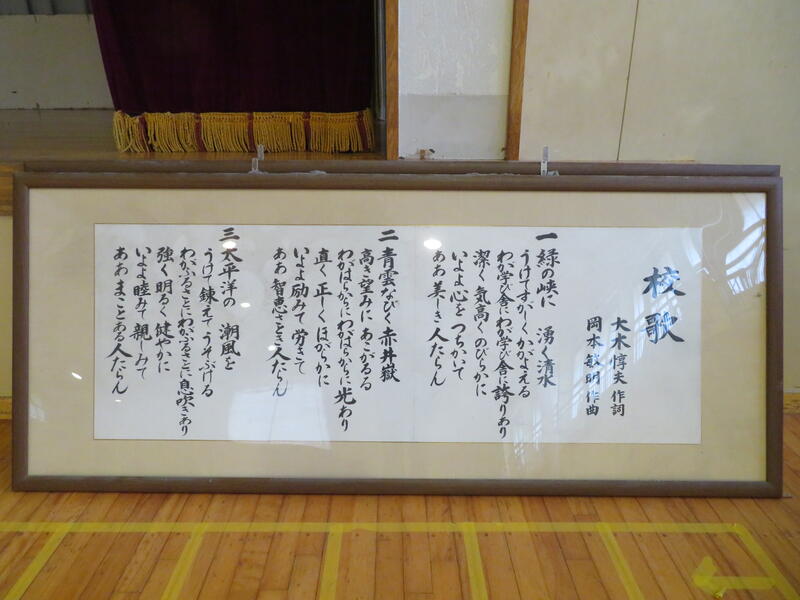 校歌
大木惇夫 作詞
岡本敏明 作曲
一 緑の峡に 湧く清水
うけてすがしくかがよえる
わが学び舎にわが学び舎に誇りあり
潔く気高くのびらかに
いよよ心をつちかいて
ああ美しき人たらん
二 青雲なびく赤井嶽
高き望みにあこがるる
わがはらからにわがはらからに光わり
直く正しくほがらかに
いよよ励みて労きて
ああ智恵さとき人たらん
三 太平洋の 潮風を
うけて錬えてうそぶける
わがふるさとにわがふるさとに息吹きあり
強く明るく健やかに
いよよ睦みて親しみて
ああまことある人たらん